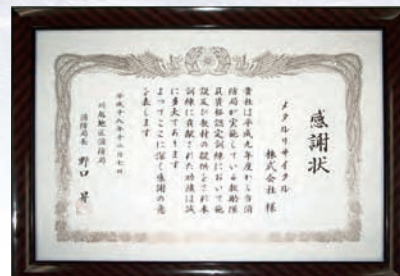 感謝状
メタルリサイクル
株式会社 様
貴社は平成九年度から当消
防局が実施している救助隊
員資格認定訓練において施
設及び教材の提供をされ本
訓練に貢献された功績は誠
に多大であります
よってここに深く感謝の意
を表します
平成十八年十二月七日
川越地区消防局
消防局長 野口 昇